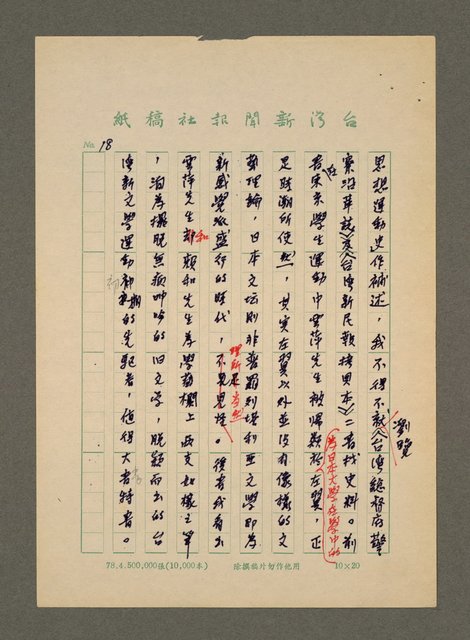 台灣新聞報社稿紙
No. 18
思想運動史作補述，我不得不瀏覽《台灣總督府警
察沿革誌》及《台灣新民報拷貝本》二者找史料。前
者在東京學生運動中雲萍先生被歸類於左翼，正
為日本大學在學中的
足踏潮所使然，其實在左翼以外並沒有像樣的文
藝理論，日本文壇則非普羅列塔利亞文學即為
新感覺派盛行的時代，不足見怪。後者我看出
理所當然
雲萍先生和賴和先生為學藝欄上兩支如椽之筆
，為擺脫無病呻吟的旧文學，脫穎而出的台
灣新文學運動初期的先驅者，值得大書特書。
78.4.500,000張(10,000本)
除撰稿外勿作他用
10×20